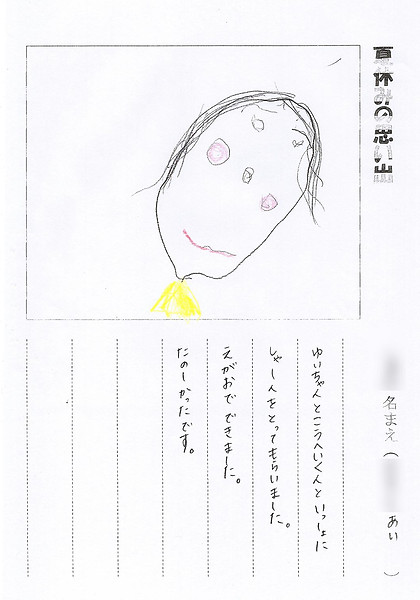 夏休みの思い出
名まえ( あい )
ゆいちゃんとこうへいくんといっしょに
しゃしんをとってもらいました。
えがおでできました。
たのしかったです。